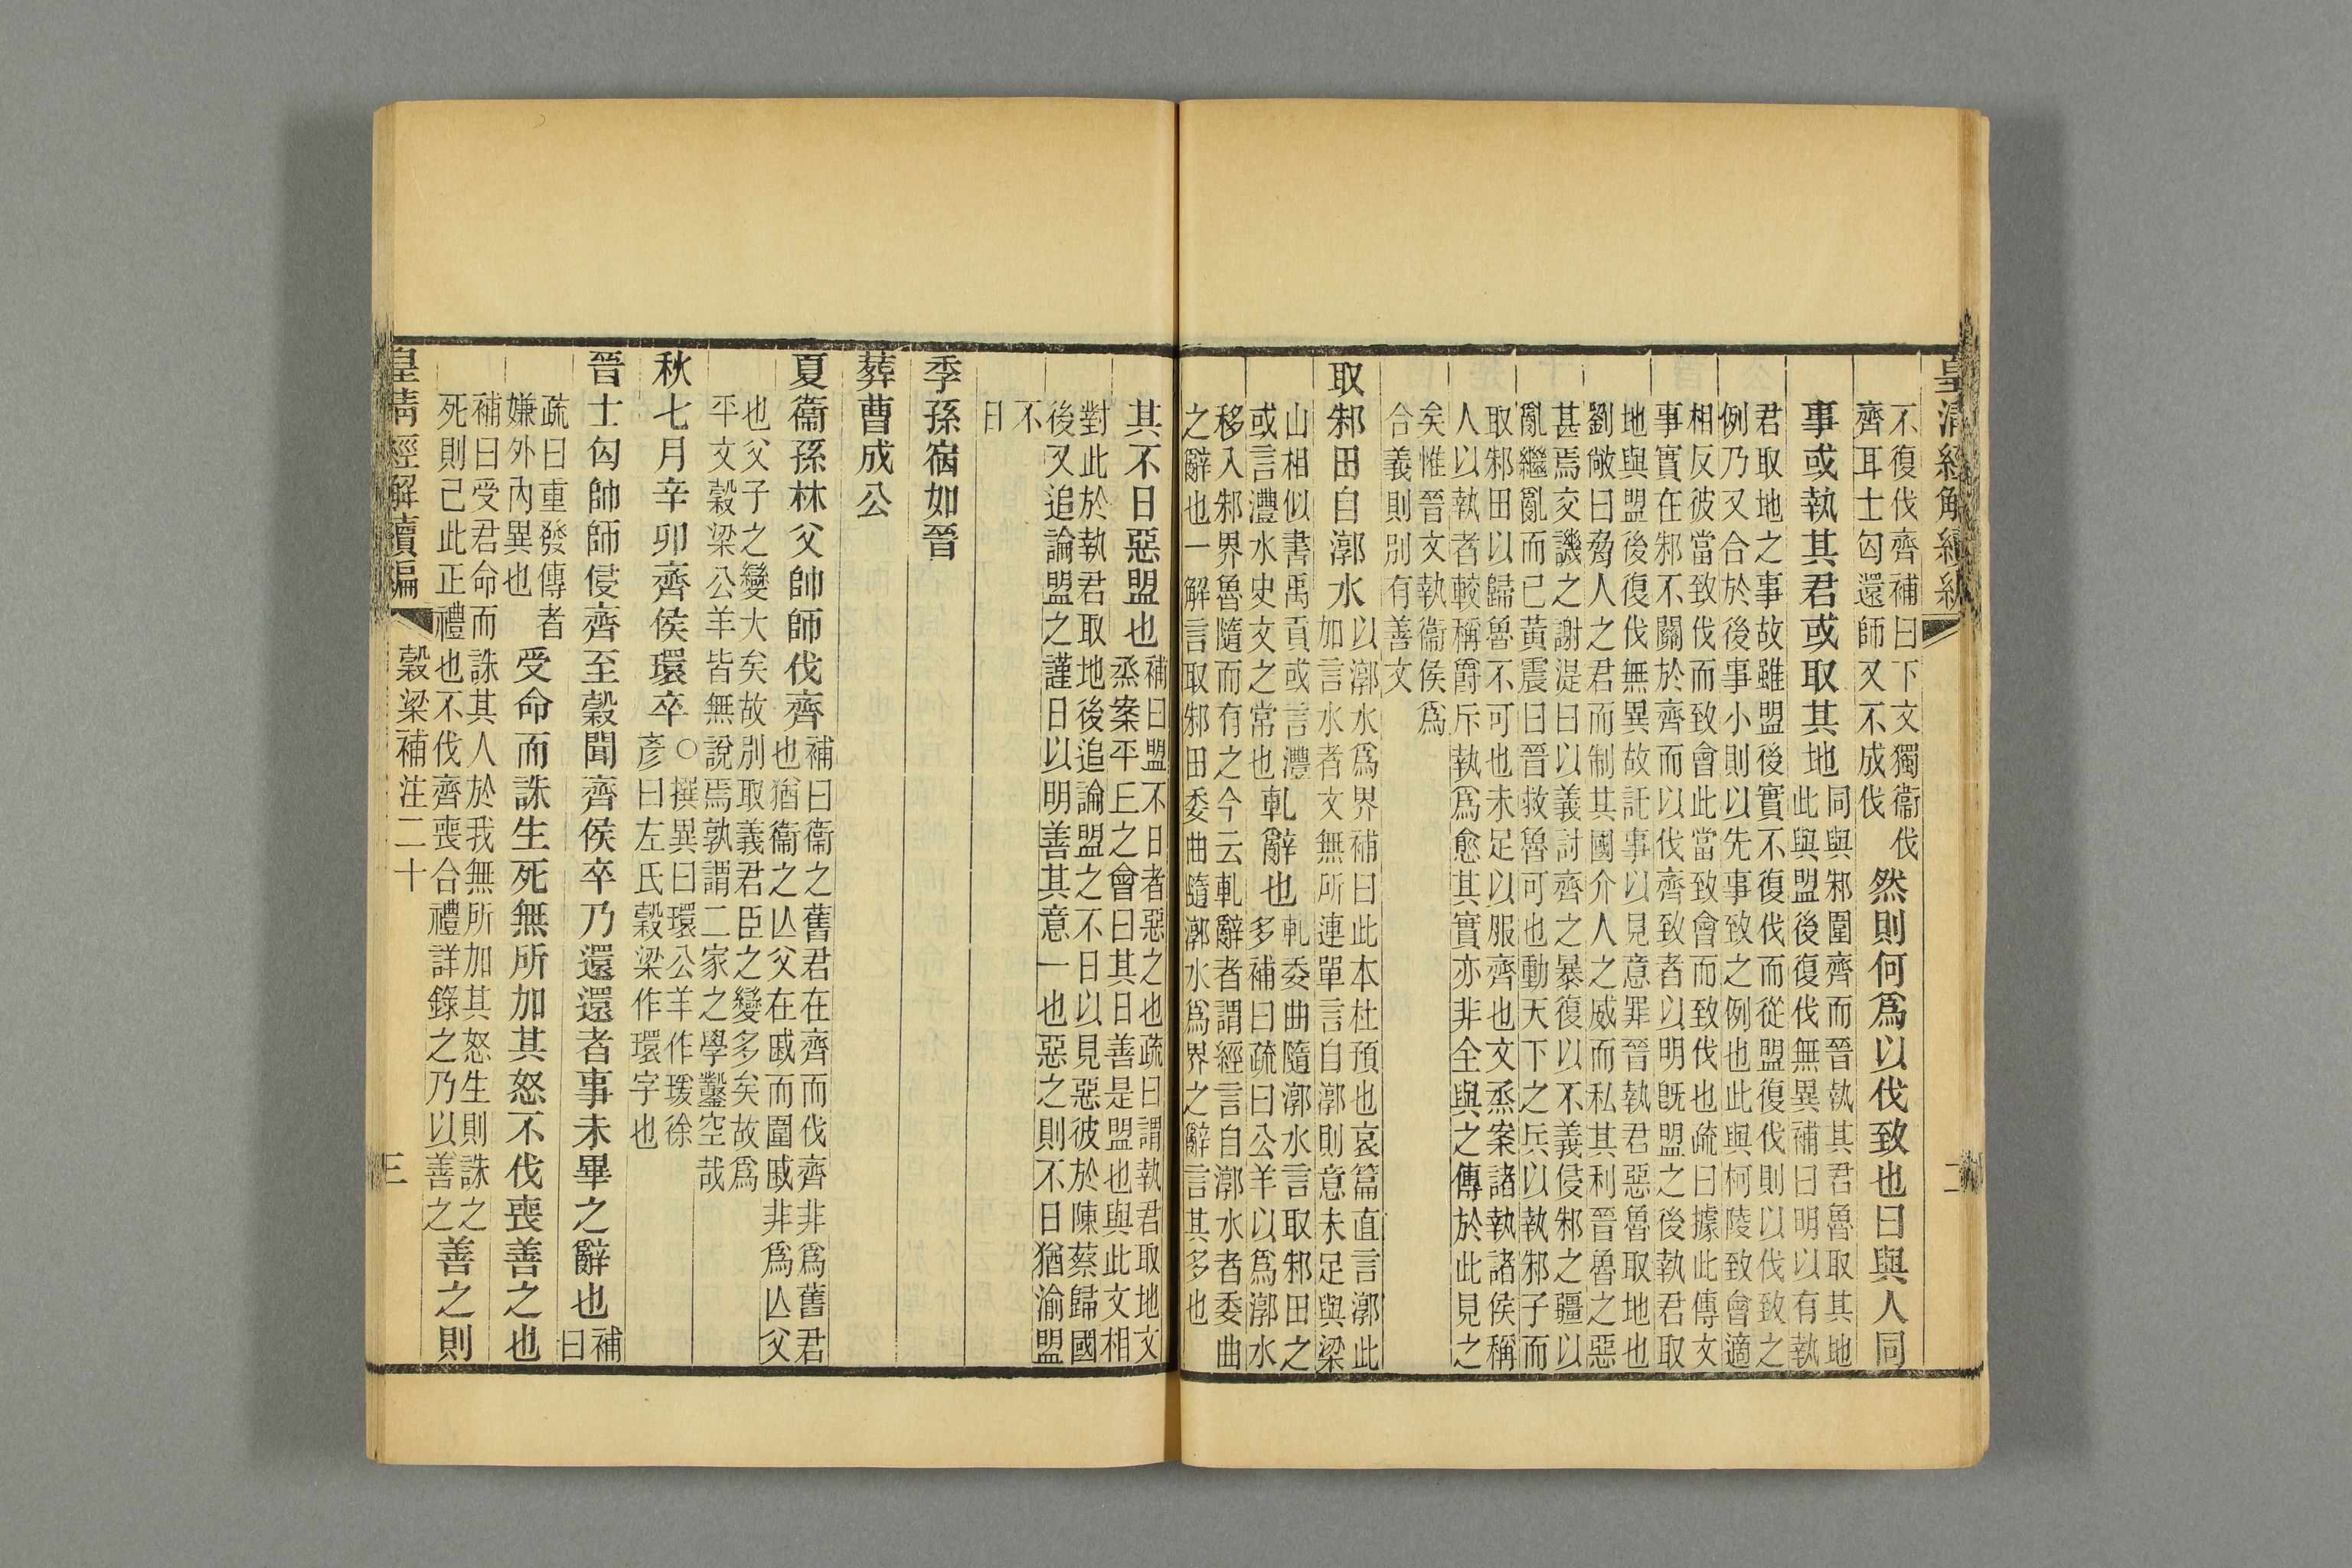 皇清經解續編
二
不復伐齊補曰下文獨衞伐
齊耳士匄還師又不成伐
然則何爲以伐致也曰與人同
事或執其君或取其地
同與邾圍齊而晉執其君魯取其地
此與盟後復伐無異補曰明以有執
君取地之事故雖盟後實不復伐而從盟復伐則以伐致之
例乃又合於後事小則以先事致之例也此與柯陵致會適
相反彼當致伐而致會此當致會而致伐也疏曰據此傳文
事實在邾不關於齊而以伐齊致者以明旣盟之後執君取
地與盟後復伐無異故託事以見意罪晉執君惡魯取地也
劉敞曰脅人之君而制其國介人之威而私其利晉魯之惡
甚焉交譏之謝湜曰以義討齊之暴復以不義侵邾之疆以
亂繼亂而已黃震曰晉救魯可也動天下之兵以執邾子而
取邾田以歸魯不可也未足以服齊也文烝案諸執諸侯稱
人以執者較稱爵斥執爲愈其實亦非全與之傳於此見之
矣惟晉文執衞侯爲
合義則別有善文
取邾田自漷水
以漷水爲界補曰此本杜預也哀篇直言漷此
加言水者文無所連單言自漷則意未足與梁
山相似書禹貢或言灃
或言灃水史文之常也
軋辭也
軋委曲隨漷水言取邾田之
多補曰疏曰公羊以爲漷水
移入邾界魯隨而有之今云軋辭者謂經言自漷水者委曲
之辭也一解言取邾田委曲隨漷水爲界之辭言其多也
其不日惡盟也
補曰盟不日者惡之也疏曰謂執君取地文
烝案平丘之會曰其日善是盟也與此文相
對此於執君取地後追論盟之不日以見惡彼於陳蔡歸國
後又追論盟之謹日以明善其意一也惡之則不日猶渝盟
不
日
季孫宿如晉
葬曹成公
夏衞孫林父帥師伐齊
補曰衞之舊君在齊而伐齊非爲舊君
也猶衞之亾父在戚而圍戚非爲亾父
也父子之變大矣故別取義君臣之變多矣故爲
平文穀梁公羊皆無說焉孰謂二家之學鑿空哉
秋七月辛卯齊侯環卒
○撰異曰環公羊作瑗徐
彥曰左氏穀梁作環字也
晉士匄帥師侵齊至穀聞齊侯卒乃還還者事未畢之辭也
補
曰
疏曰重發傳者
嫌外內異也
受命而誅生死無所加其怒不伐喪善之也
補曰受君命而誅其人於我無所加其怒生則誅之
死則已此正禮也不伐齊喪合禮詳錄之乃以善之
善之則
皇清經解續編
穀梁補注二十
三